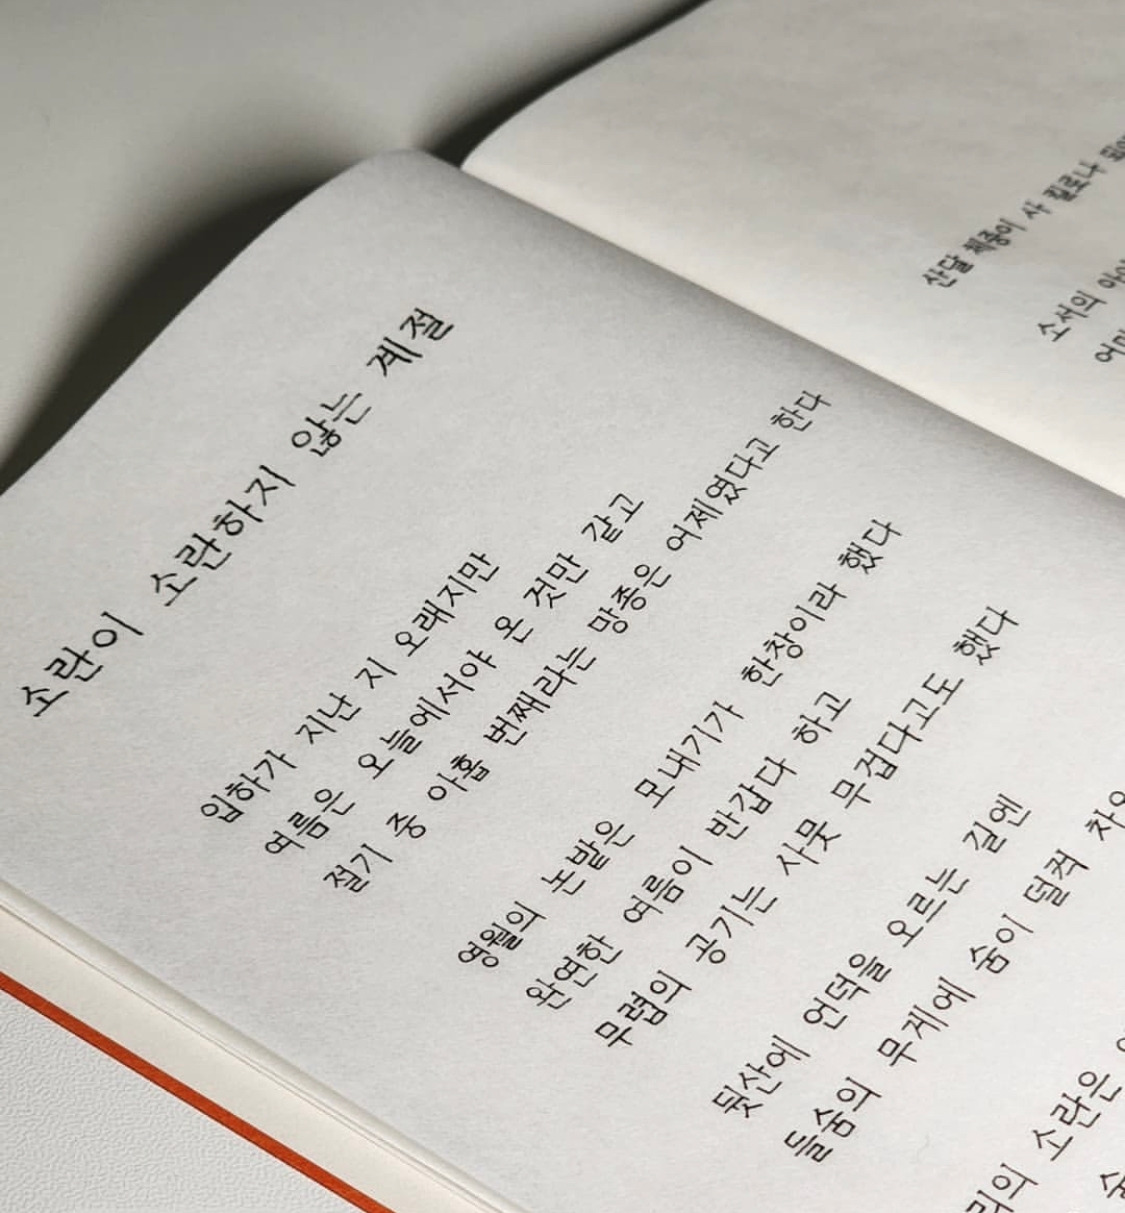 소란이 소란하지 않는 계절
입하가 지난 지 오래지만
여름은 오늘에서야 온 것만 같고
절기 중 아홉 번째라는 망종은 어제였다고 한다
영월의 논밭은 모내기가 한창이라 했다
완연한 여름이 반갑다 하고
무렵의 공기는 사뭇 무겁다고도 했다
뒷산에 언덕을 오르는 길엔
들숨의 무게에 숨이 덜켜
소란은
산달 체중이 사 킬로나
소서의